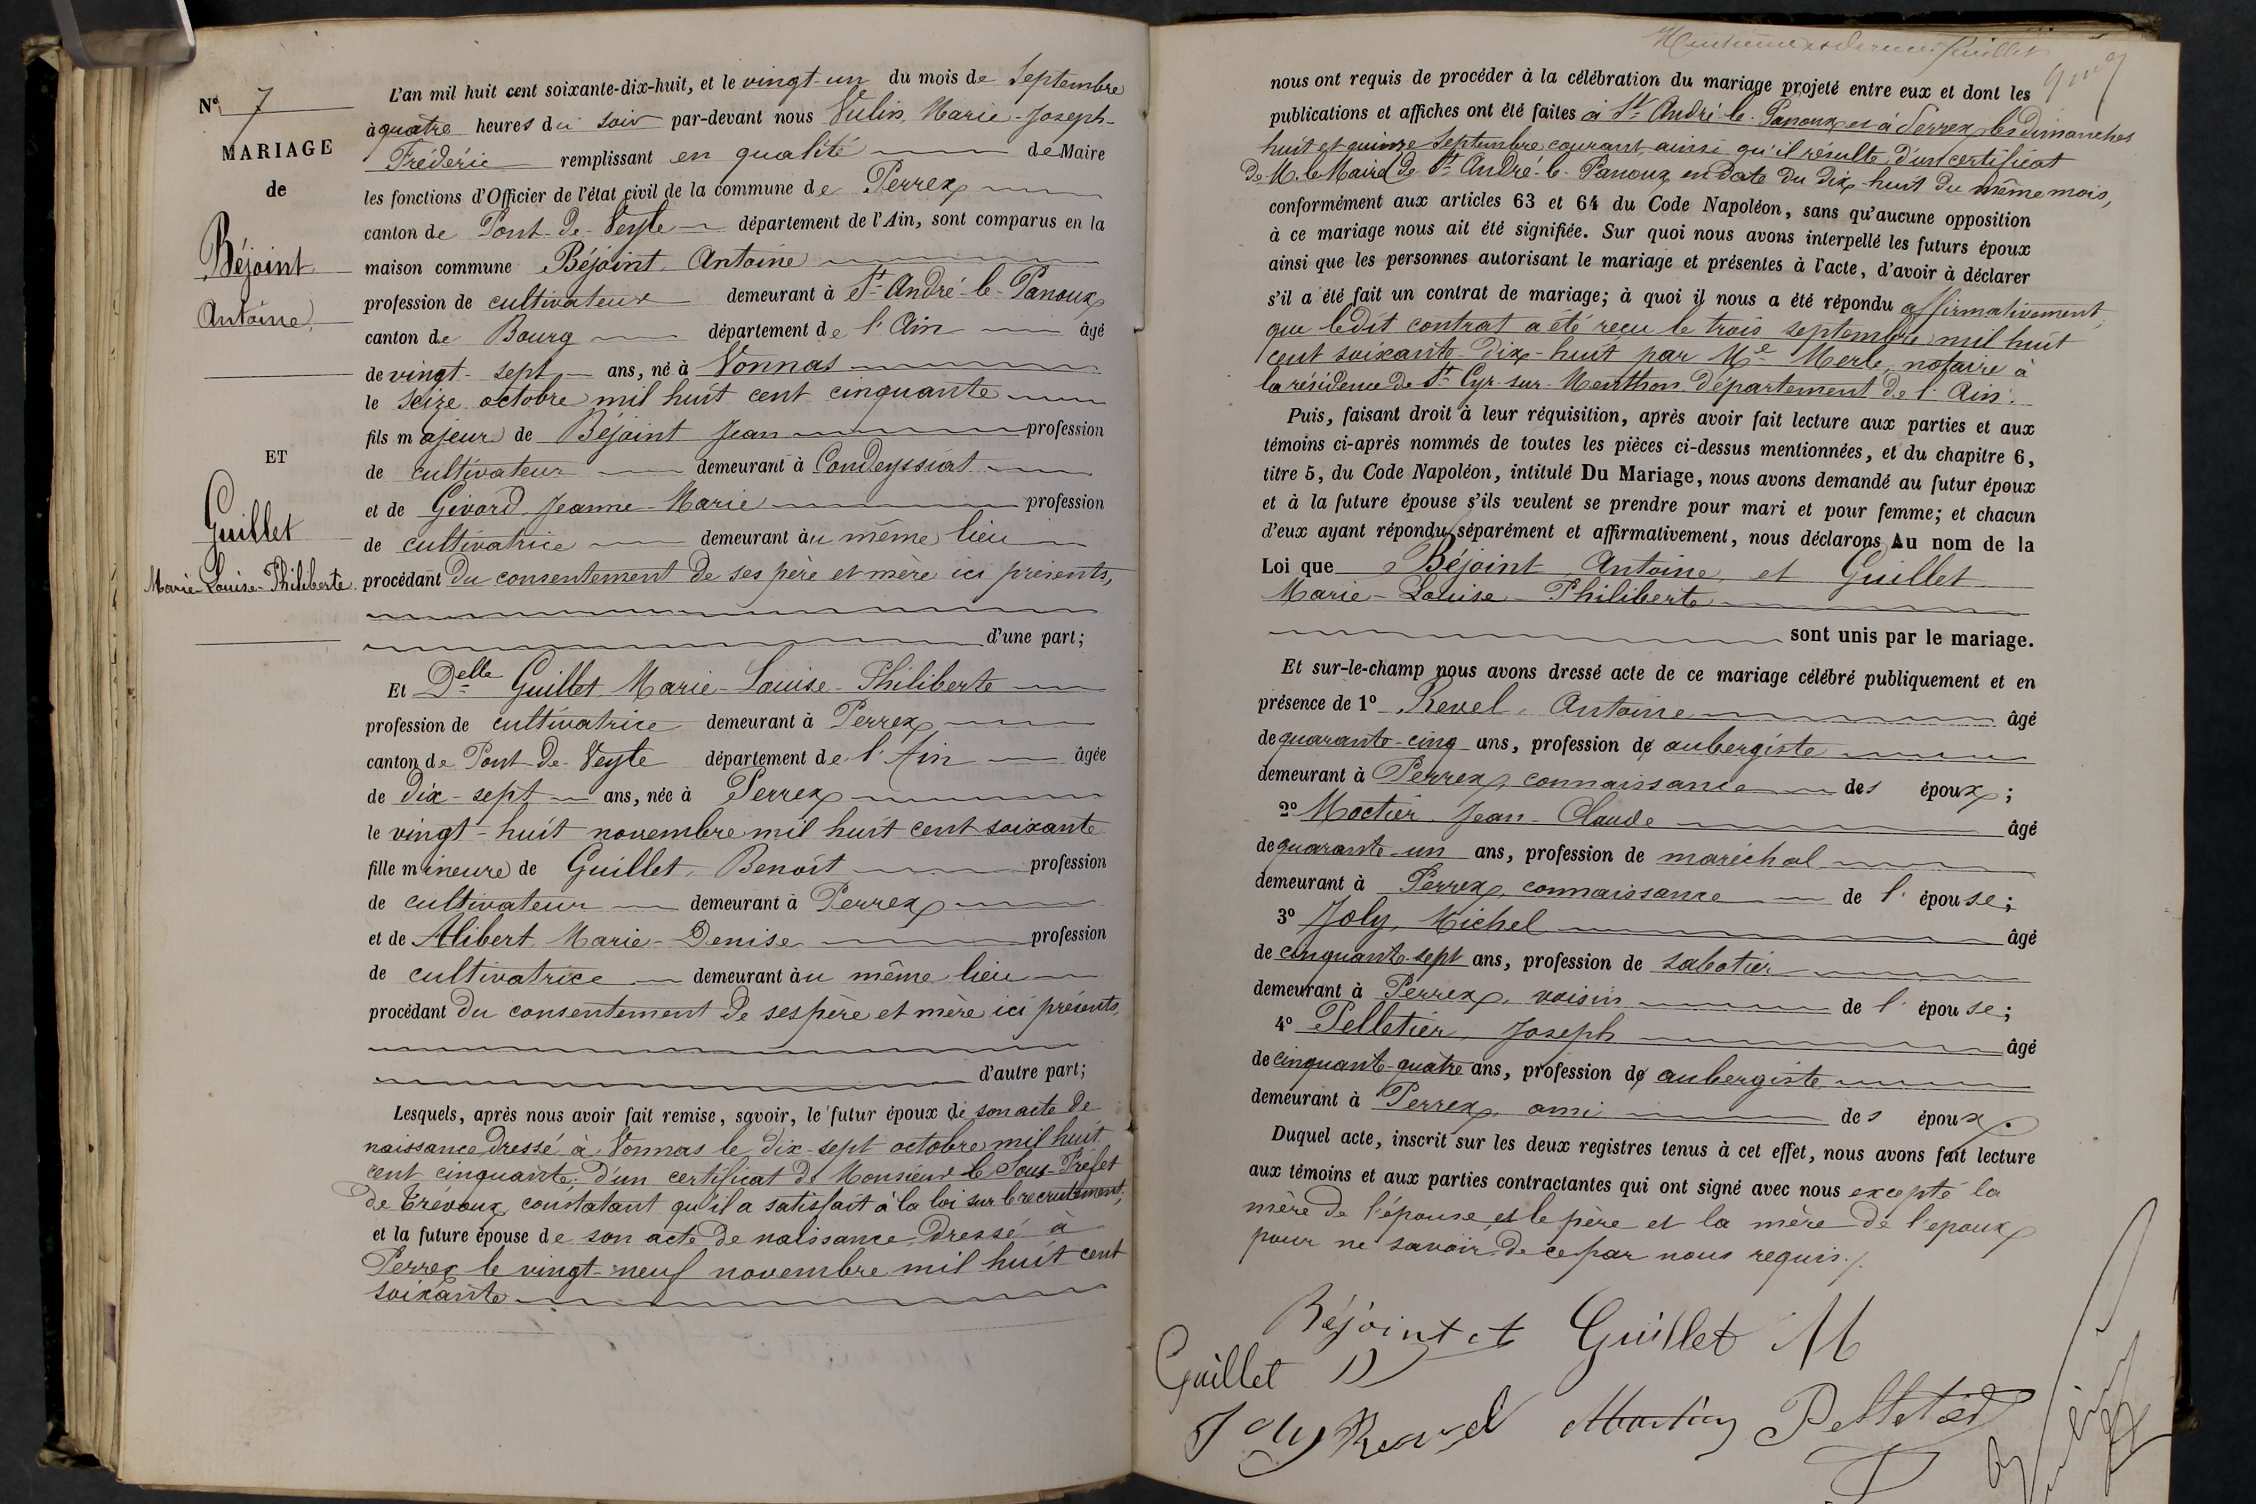 N° 7
MARIAGE
de
Béjoint
Antoine
ET
Guillet
Marie-Louise-Philiberte.
L'an mil huit cent soixante-dix-huit, et le vingt-un du mois de Septembre
à quatre heures du soir par-devant nous Vulin, Marie-Joseph-
Frédéric remplissant en qualité de Maire
les fonctions d'Officier de l'état civil de la commune de Perrex
canton de Pont-de-Veyle département de l'Ain, sont comparus en la
maison commune Béjoint Antoine
profession de cultivateur demeurant à St André-le-Panoux
canton de Bourg département de l'Ain âgé
de vingt-sept ans, né à Vonnas
le seize octobre mil huit cent cinquante
fils majeur de Béjoint Jean profession
de cultivateur demeurant à Condeyssiat
et de Givord Jeanne-Marie profession
de cultivatrice demeurant au même lieu
procédant du consentement de ses père et mère ici présents,
d'une part;
Et Delle Guillet Marie-Louise-Philiberte
profession de cultivatrice demeurant à Perrex
canton de Pont-de-Veyle département de l'Ain âgée
de dix-sept ans, née à Perrex
le vingt-huit novembre mil huit cent soixante
fille mineure de Guillet, Benoît profession
de cultivateur demeurant à Perrex
et de Alibert Marie-Denise profession
de cultivatrice demeurant au même lieu
procédant du consentement de ses père et mère ici présents,
d'autre part;
Lesquels, après nous avoir fait remise, savoir, le futur époux de son acte de
naissance dressé à Vonnas le dix-sept octobre mil huit
cent cinquante; d'un certificat de Monsieur le Sous-Préfet
de Trévoux constatant qu'il a satisfait à la loi sur le recrutement;
et la future épouse de son acte de naissance, dressé à
Perrex le vingt-neuf novembre mil huit cent
soixante
feuillet
nous ont requis de procéder à la célébration du mariage projeté entre eux et dont les
publications et affiches ont été faites à St André-le-Panoux et à Perrex les dimanches
huit et quinze Septembre courant, ainsi qu'il résulte d'un certificat
de M. le Maire de St André-le-Panoux en date du dix-huit du même mois,
conformément aux articles 63 et 64 du Code Napoléon, sans qu'aucune opposition
à ce mariage nous ait été signifiée. Sur quoi nous avons interpellé les futurs époux
ainsi que les personnes autorisant le mariage et présentes à l'acte, d'avoir à déclarer
s'il a été fait un contrat de mariage; à quoi il nous a été répondu affirmativement,
que ledit contrat a été reçu le trois septembre mil huit
cent soixante-dix-huit par Me Merle, notaire à
la résidence de St Cyr-sur-Menthon département de l'Ain.
Puis, faisant droit à leur réquisition, après avoir fait lecture aux parties et aux
témoins ci-après nommés de toutes les pièces ci-dessus mentionnées, et du chapitre 6,
titre 5, du Code Napoléon, intitulé Du Mariage, nous avons demandé au futur époux
et à la future épouse s'ils veulent se prendre pour mari et pour femme; et chacun
d'eux ayant répondu séparément et affirmativement, nous déclarons Au nom de la
Loi que Béjoint, Antoine, et Guillet
Marie-Louise-Philiberte
sont unis par le mariage.
Et sur-le-champ nous avons dressé acte de ce mariage célébré publiquement et en
présence de 1° Revel, Antoine âgé
de quarante-cinq ans, profession de aubergiste
demeurant à Perrex, connaissance des époux;
2° Moctier Jean-Claude âgé
de quarante-un ans, profession de maréchal
demeurant à Perrex, connaissance de l'épouse;
3° Joly, Michel âgé
de cinquante-sept ans, profession de sabotier
demeurant à Perrex, voisin de l'épouse;
4° Pelletier, Joseph âgé
de cinquante-quatre ans, profession de aubergiste
demeurant à Perrex, ami des époux.
Duquel acte, inscrit sur les deux registres tenus à cet effet, nous avons fait lecture
aux témoins et aux parties contractantes qui ont signé avec nous excepté la
mère de l'épouse, et le père et la mère de l'époux
pour ne savoir, de ce par nous requis.
Béjoint A Guillet M
Guillet
Joly Revel Pelletier